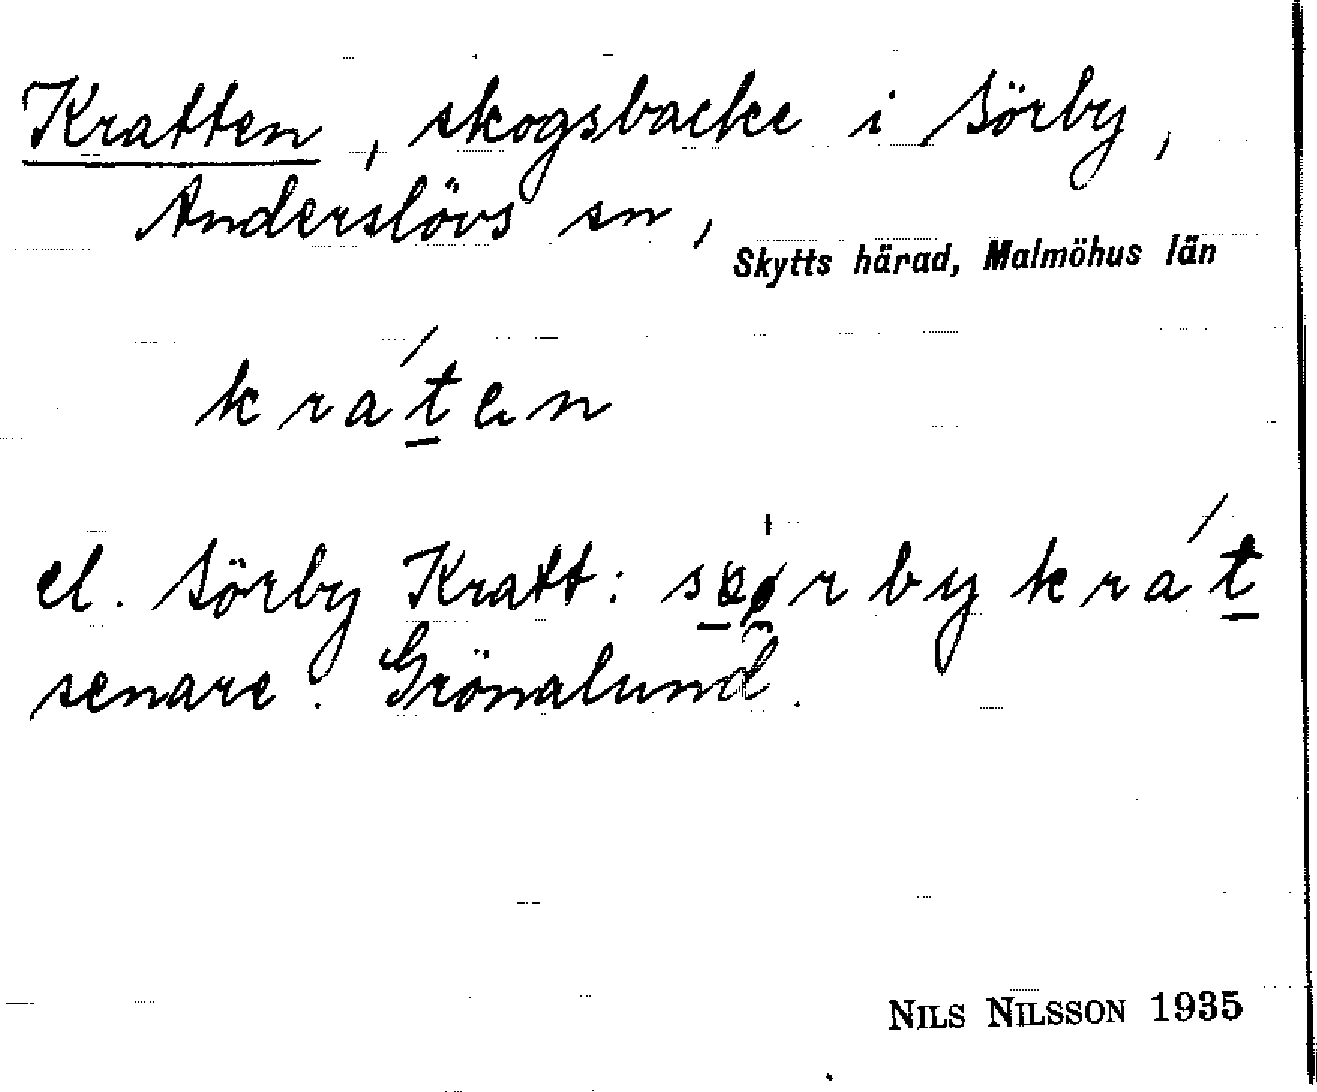 Kratten, skogsbacke i Sörby,
Anderslövs sn,
Skytts härad, Malmöhus län
kra´t̲en
el. Sörby Kratt: sø̲ø̯rbykra´t̲
senare: Grönalund.
NILS NILSSON 1935